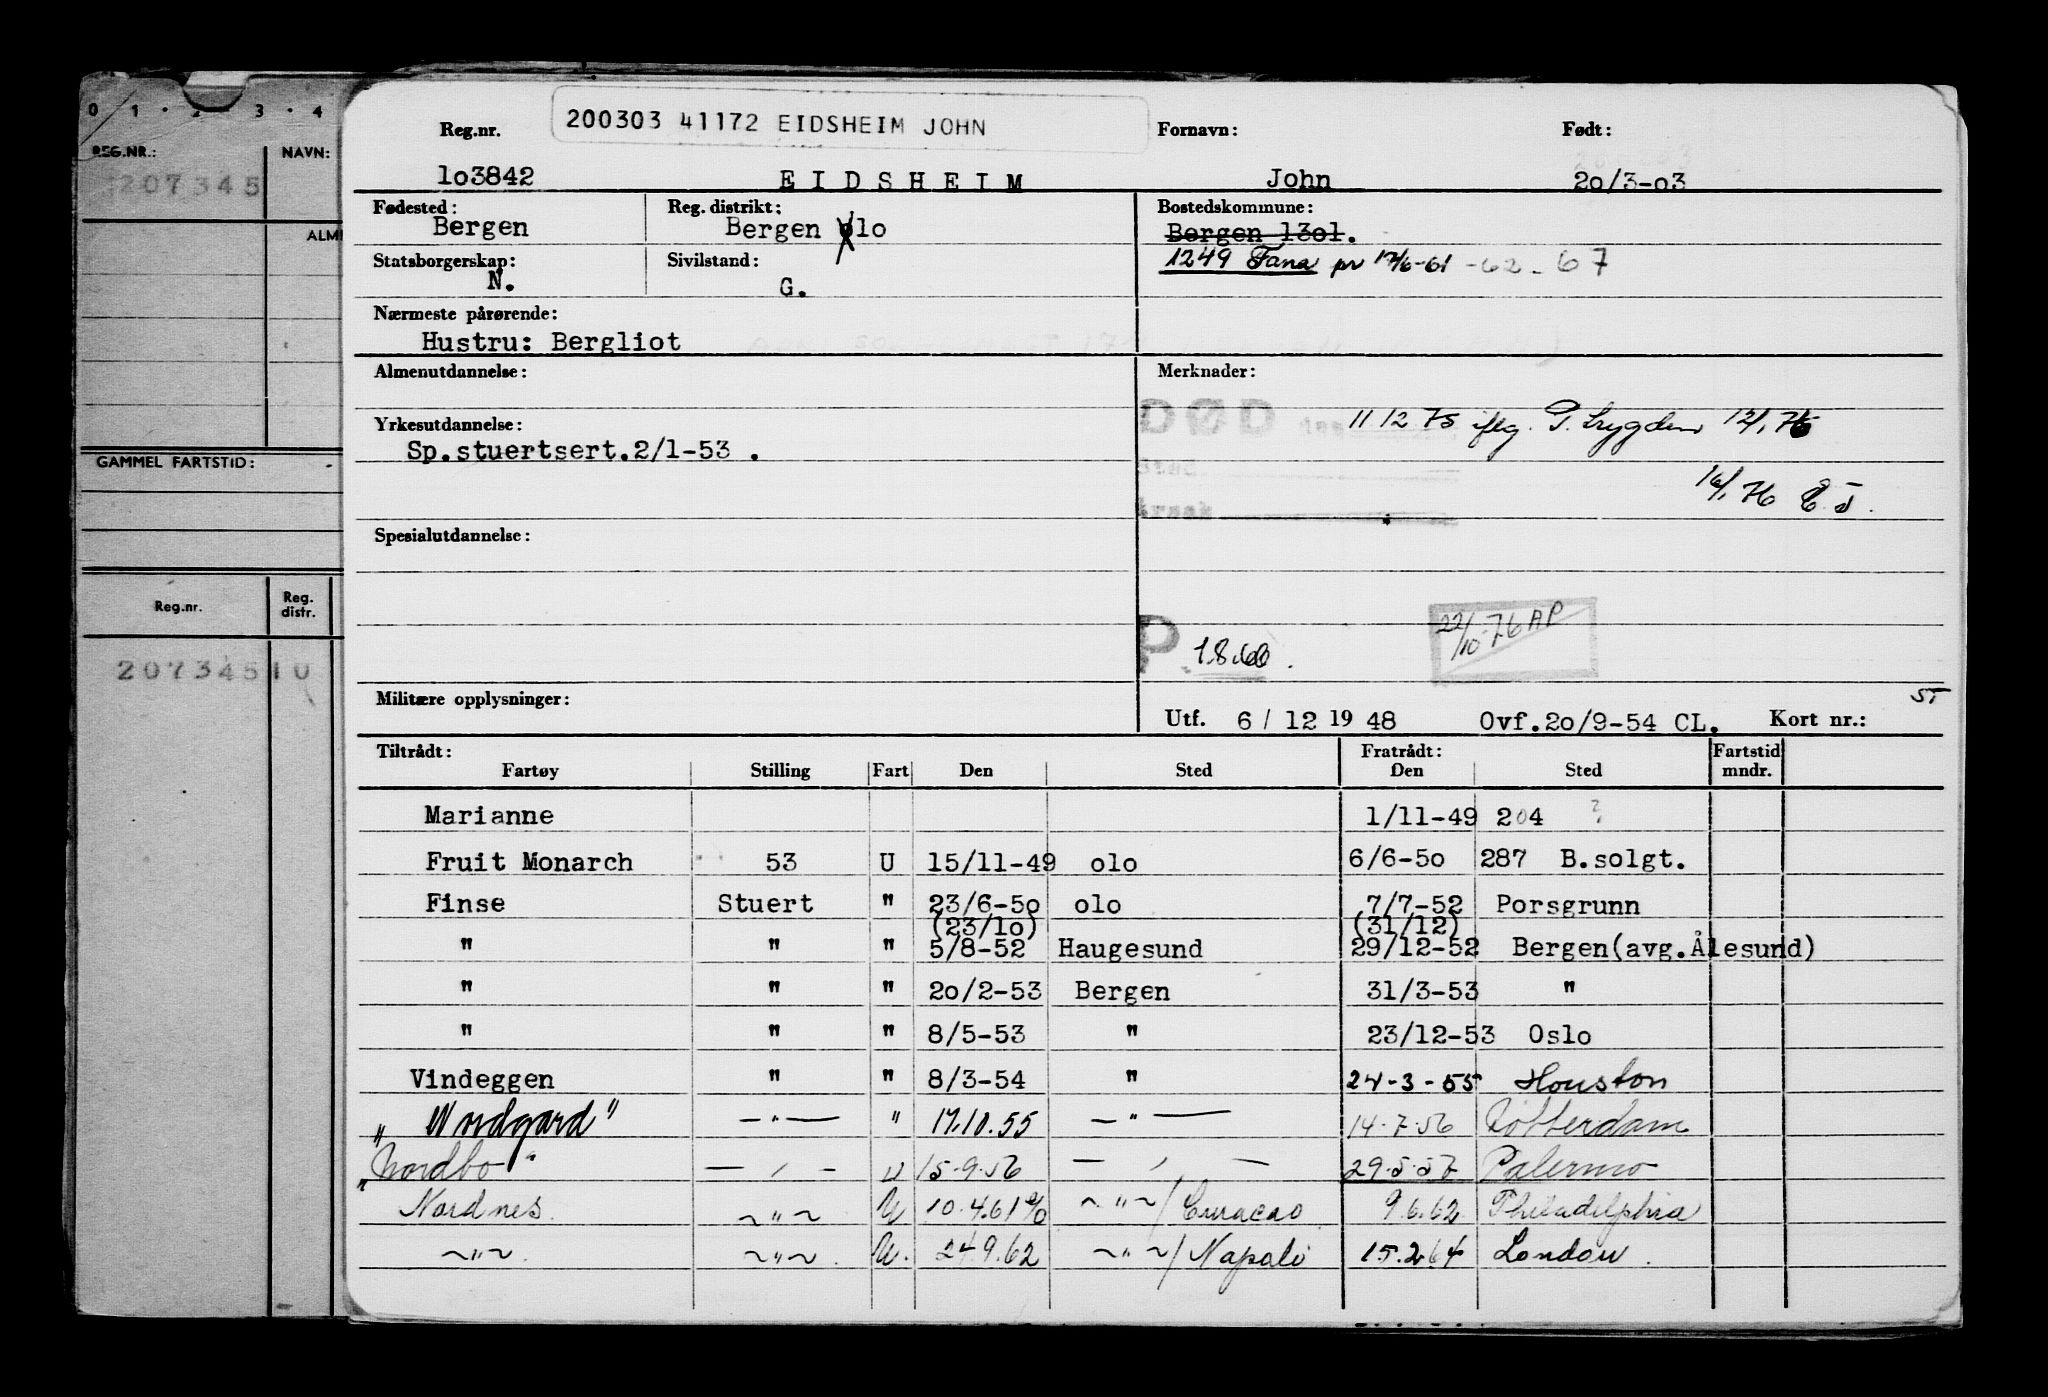 0 1 · 2 3 · 4
REG.NR.: NAVN:
207345
GAMMEL FARTSTID:
Reg.nr. Reg. distr.
20734510
200303 41172 EIDSHEIM JOHN
Reg.nr. Fornavn: Født:
lo3842 EIDSHEIM John 2o/3-o3
Fødested: Reg. distrikt: Bostedskommune:
Bergen Bergen olo Bergen 13ol.
Statsborgerskap: Sivilstand: 1249 Fana pr 17/6-61 -62-67
N. G.
Nærmeste pårørende:
Hustru: Bergliot
Almenutdannelse: Merknader:
DØD 11 12 75 iflg. P. trygden 12/1 76
Yrkesutdannelse:
Sp.stuertsert.2/1-53 .
16/1 76
Spesialutdannelse:
P 1.8.60. 22/10-76 AP
Militære opplysninger: Utf. 6/12 1948 Ovf.2o/9-54 CL. Kort nr.:
Tiltrådt: Fratrådt: Fartstid
Fartøy Stilling Fart Den Sted Den Sted mndr.
Marianne 1/11-49 204 ?
Fruit Monarch 53 U 15/11-49 olo 6/6-5o 287 B.solgt.
Finse Stuert " 23/6-5o olo 7/7-52 Porsgrunn
(23/1o) (31/12)
" " " 5/8-52 Haugesund 29/12-52 Bergen(avg.Ålesund)
" " " 2o/2-53 Bergen 31/3-53 "
" " " 8/5-53 " 23/12-53 Oslo
Vindeggen " " 8/3-54 " 24-3-55 Houston
"Nordgard" —"— " 17.10.55 —"— 14.7.56 Rotterdam
"Nordbo" —"— U 15.9.56 —"— 29.5.57 Palermo
Nordnes ~"~ U 10.4.61 ~"~/Curacao 9.6.62 Philadelphia
~"~ ~"~ U. 24.9.62 ~"~/Napoli 15.2.64 London.